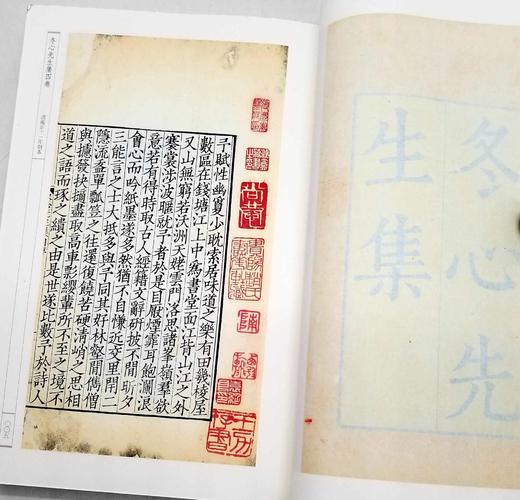 冬心先
生集
予賦性幽夐少耽索居味道之樂有田幾棱屋
數區在錢塘江上中為書堂面江背山江之外
又山無窮若沃洲天姥雲門洛思諸峯嶺羣欲
褰裳涉波暱就予者於是目厭煙霏耳飽瀾浪
意若有得時取古人經籍文辭研披不閒昕夕
會心而吟紙墨遂多然猶不自慊近交里閈二
三能言之士大抵多與予同其好林壑間儁僧
隱流盋單瓢笠之往還復饒苦硬清峭之思相
與攄發抉擿盡取高車影纓輩所不至之境不
道之語而琢之繢之由是世遂比數予於詩人
冬心先生集四卷
清雍正十一年刻本
〇〇五